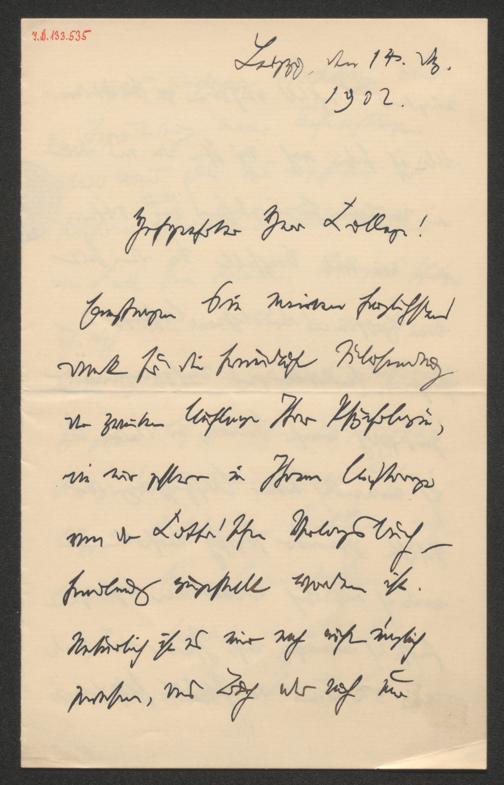 I.N. 133.535
Leipzig, den 14. Dz.
1902.
Hochgeehrter Herr Kollege!
Empfangen Sie meinen herzlichsten
Dank für die freundliche Übersendung
der zweiten Auflage Ihrer Psychologie,
die mir gestern in Ihrem Auftrage
von der Cotta'schen Verlagsbuch-
handlung zugestellt worden ist.
Natürlich ist es mir noch nicht möglich
gewesen, das Buch oder auch nur